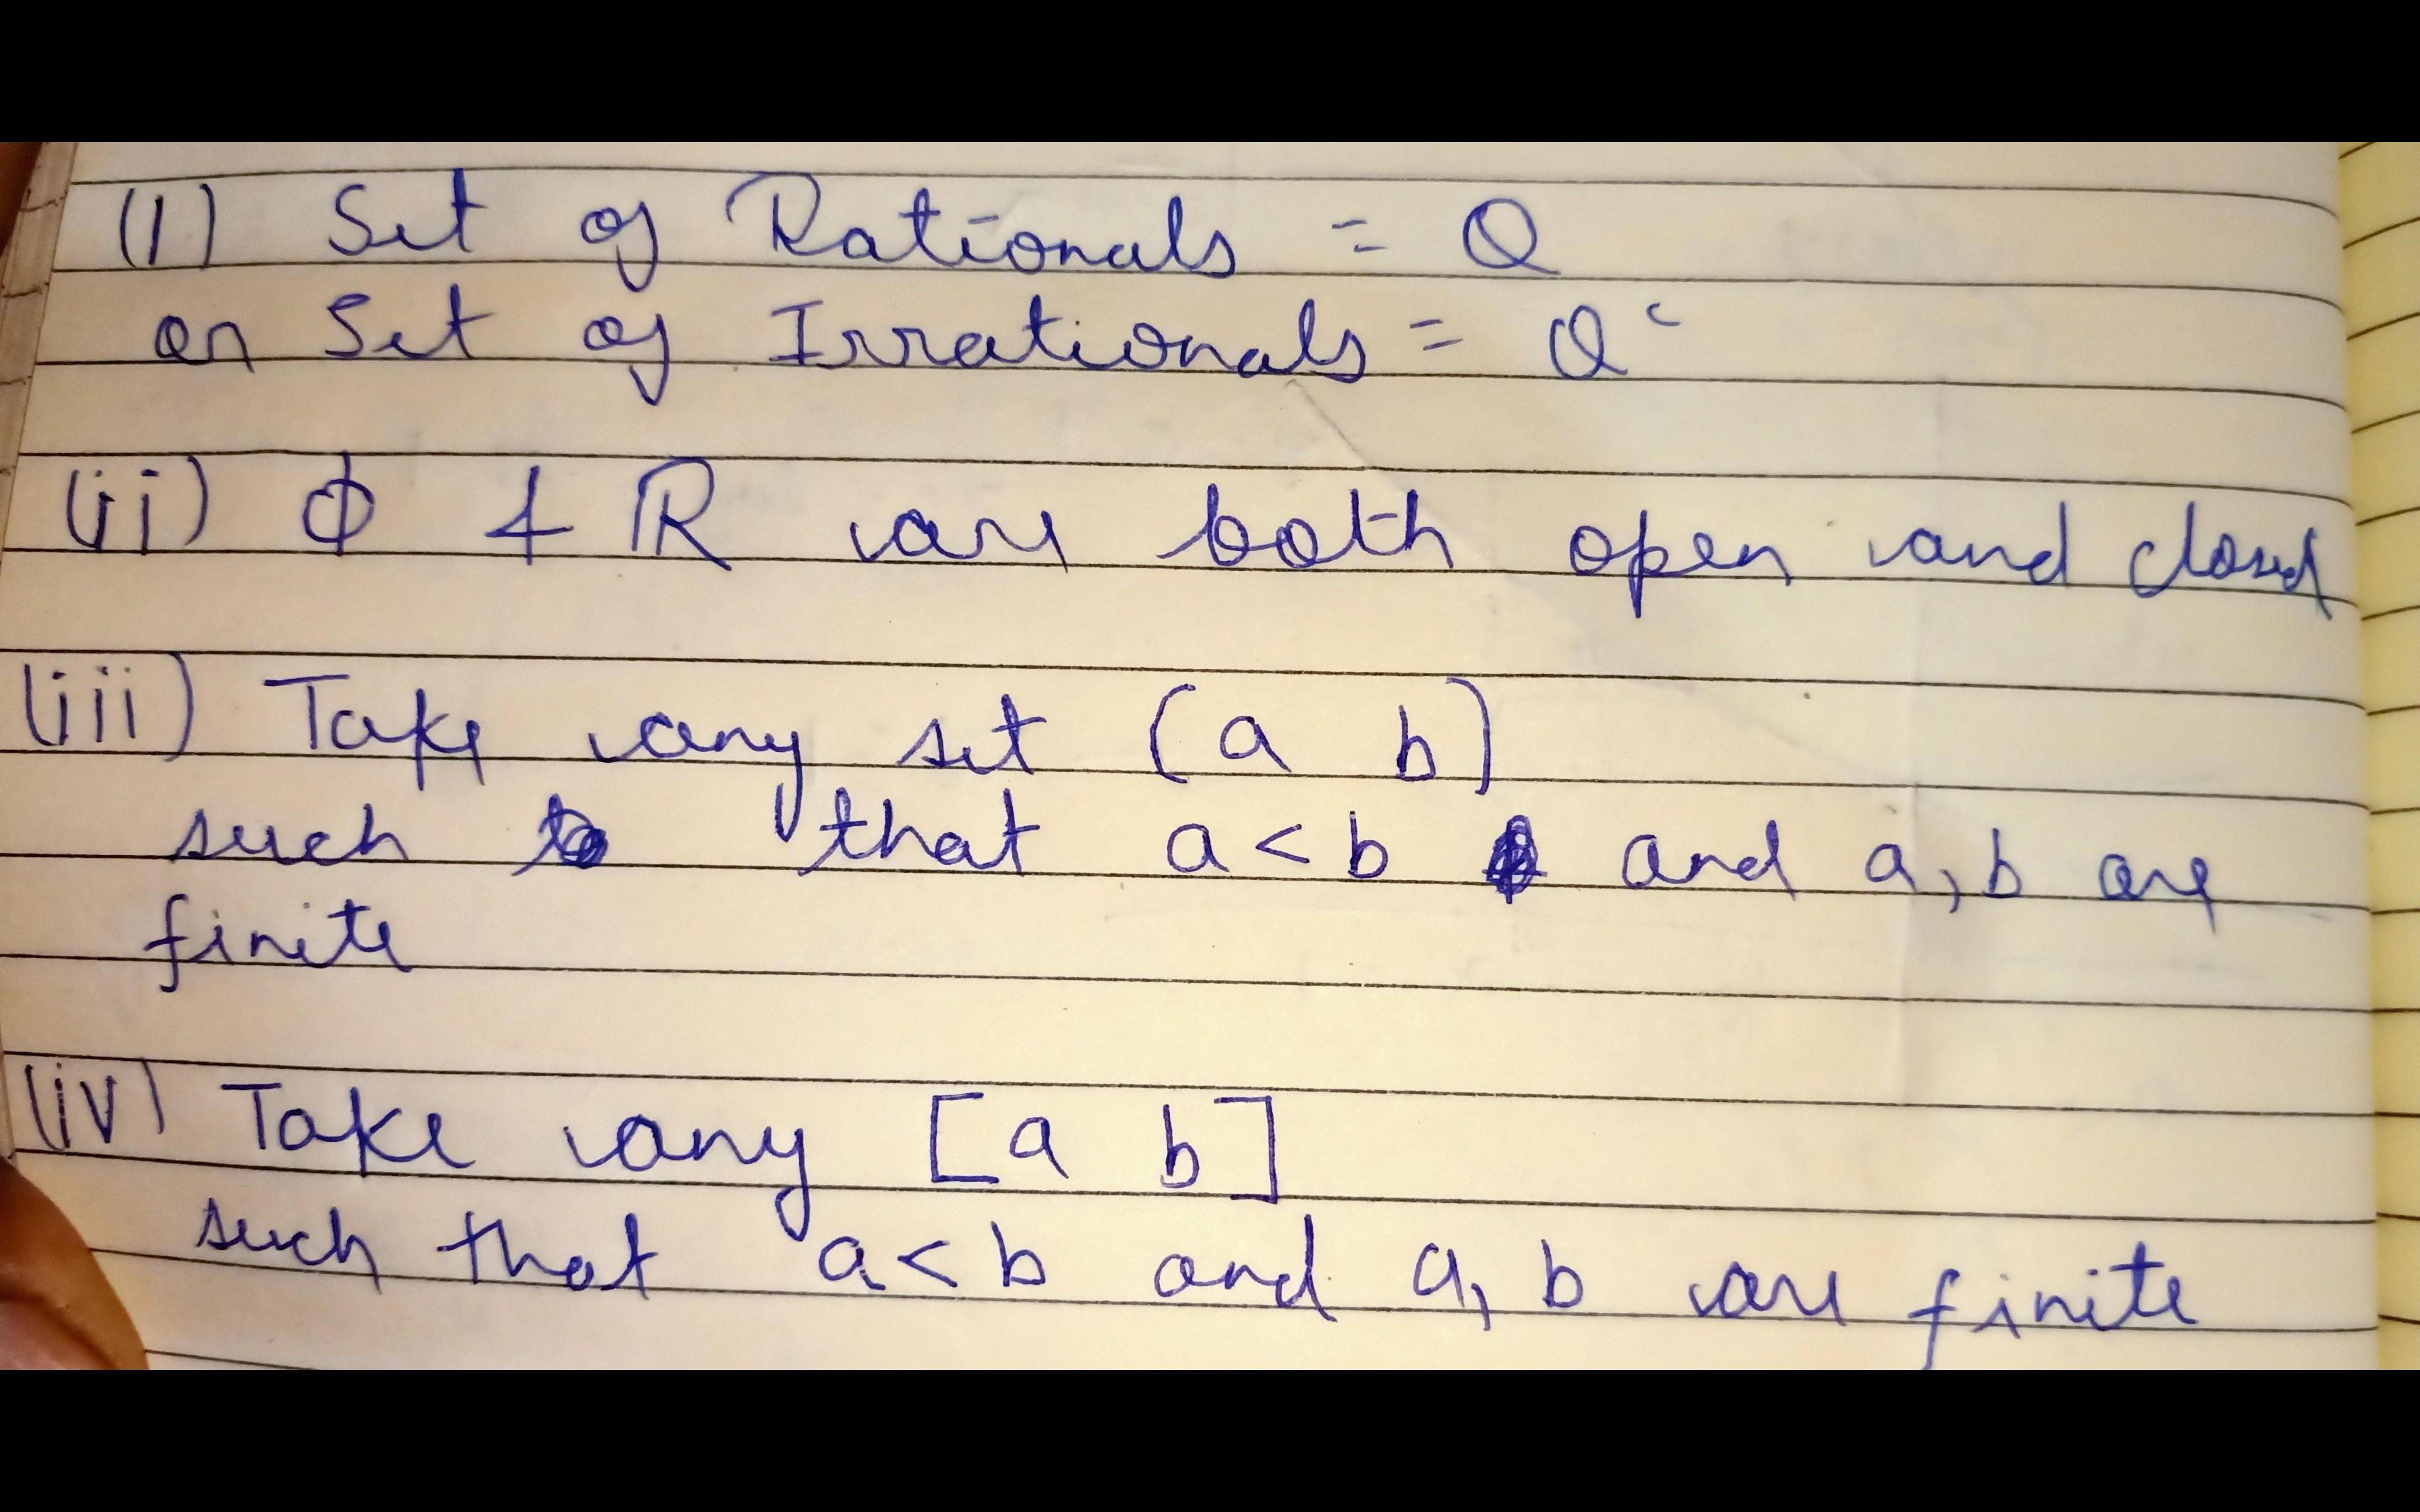 (i) Set of Rationals = Q
or Set of Irrationals = Qᶜ
(ii) ϕ & R are both open and closed
(iii) Take any set (a b)
such that a < b and a, b are
finite
(iv) Take any [a b]
such that a < b and a, b are finite